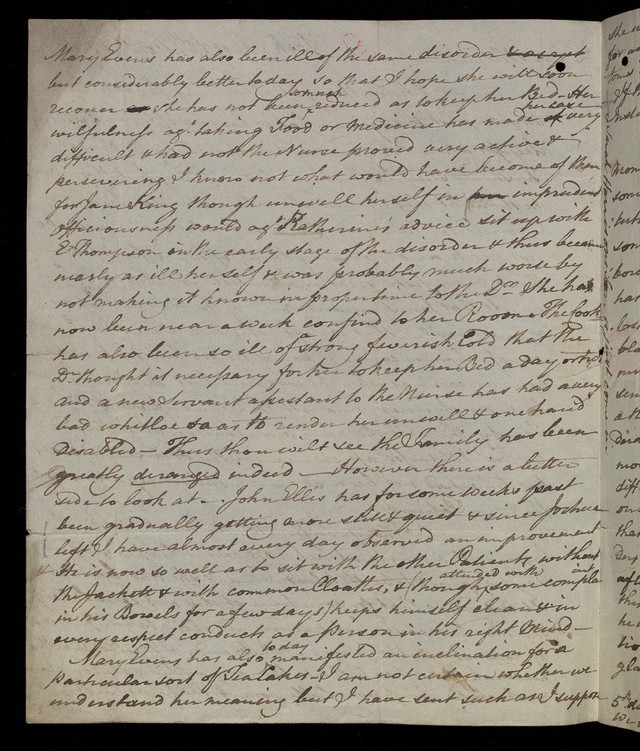 Mary Evens has also been ill of the same disorder & except
but considerably better today so that I hope she will soon
recover she has not been so much reduced as to keep her Bed - Her
wilfulness agt. taking Food or Medicine has made her case very
difficult & had not the Nurse proved very active &
persevering I know not what would have become of them
for Jane King though unwell herself in imprudent
officiousness would agt. Katherine's advice sit up with
E Thompson in the early stage of the disorder & thus became
nearly as ill herself & was probably much worse by
not making it known in proper time to the Dr. She has
now been near a week confind to her Room. The Cook
has also been so ill of a strong feverish Cold that the
Dr. thought it necessary for her to keep her Bed a day or two
and a new Servant assistant to the Nurse has had a very
bad whitloe so as to render her unwell & one hand
Disabled - Thus thou wilt see the Family has been
greatly deranged indeed - However there is a better
side to look at - John Ellis has for some weeks past
been gradually getting more still & quiet & since Joshua
left I have almost every day observed an improvement
& He is now so well as to sit with the other Patients without
the Jackett & with common Cloaths, & (though attended with some complaint
in his Bowels for a few days) keeps himself clean & in
every respect conducts as a Person in his right Mind -
Mary Evens has also today manifested an inclination for a
particular sort of Tea Cakes - I am not certain whether we
understand her meaning but I have sent such as I suppose